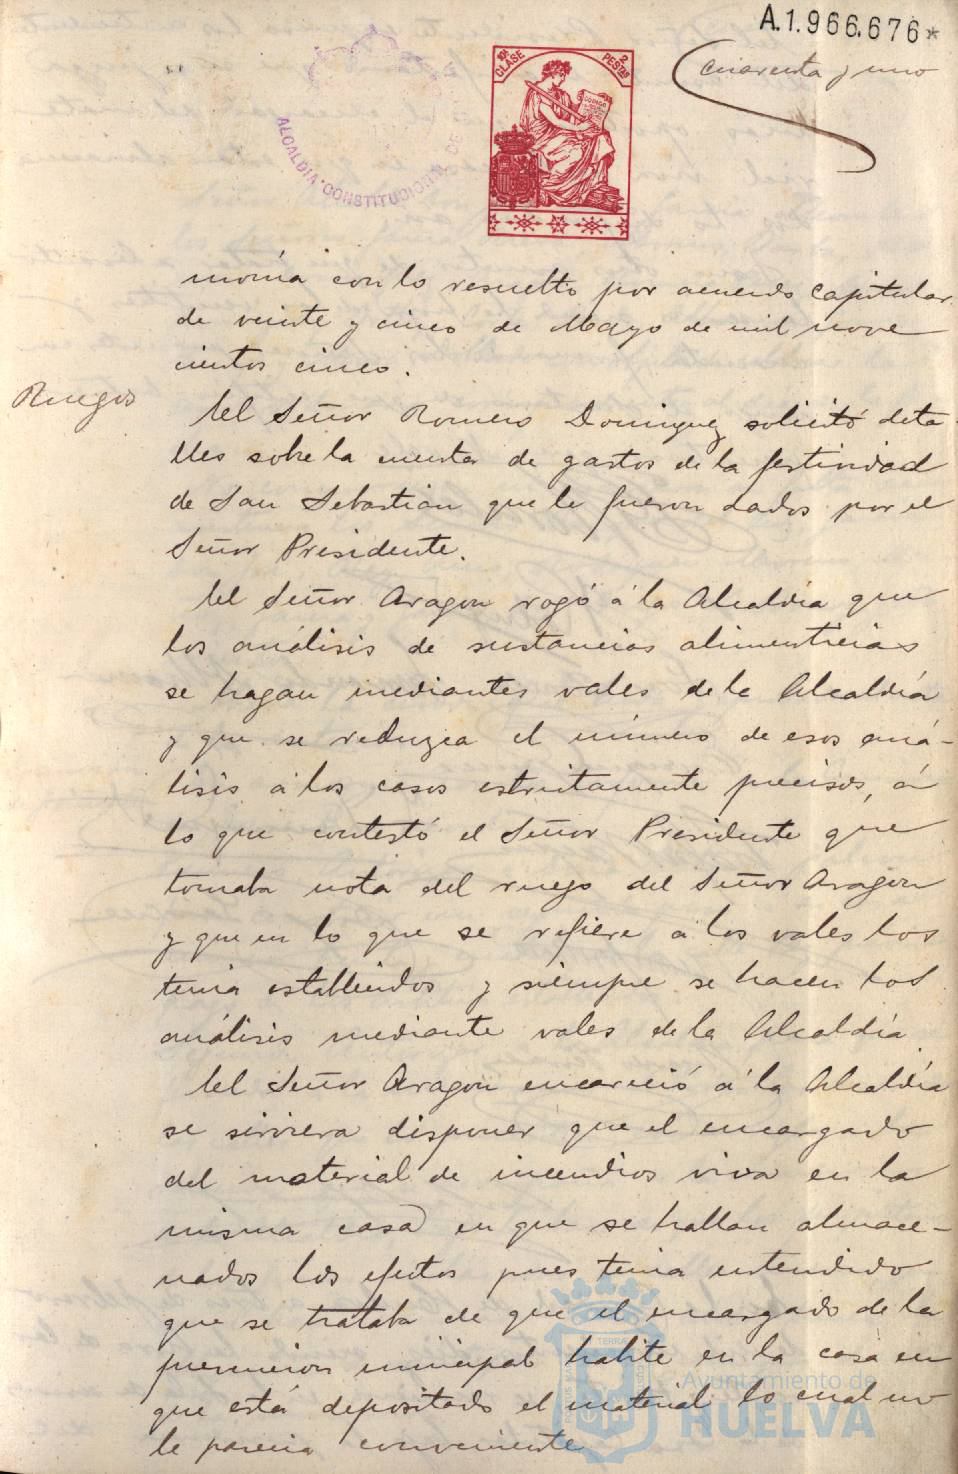 A.1.966.676*
cuarenta y uno
10ª CLASE
2 PESTAS
ALCALDIA CONSTITUCIONAL DE
monia con lo resuelto por acuerdo capitular
de veinte y cinco de Mayo de mil nove
cientos cinco.
Ruegos
El Señor Romero Dominguez solicitó deta-
lles sobre la cuenta de gastos de la festividad
de San Sebastian que le fueron dados por el
Señor Presidente.
El Señor Aragon rogó á la Alcaldía que
los análisis de sustancias alimenticias
se hagan mediantes vales de la Alcaldía
y que se reduzca el número de esos aná-
lisis á los casos estrictamente precisos, á
lo que contestó el Señor Presidente que
tomaba nota del ruego del Señor Aragon
y que en lo que se refiere á los vales los
tenia establecidos y siempre se hacen los
análisis mediante vales de la Alcaldía
El Señor Aragon encareció á la Alcaldía
se sirviera disponer que el encargado
del material de incendios viva en la
misma casa en que se hallan almace-
nados los efectos pues tenia entendido
que se trataba de que el encargado de la
prevencion municipal habite en la casa en
que está depositado el material lo cual no
le parecia conveniente
Ayuntamiento de
HUELVA